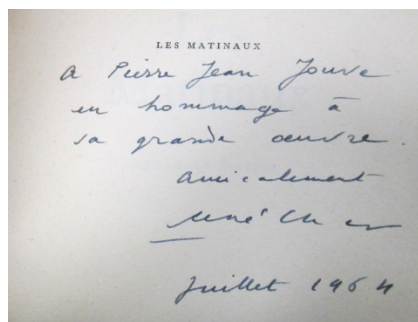 LES MATINAUX
A Pierre Jean Jouve
en hommage à
sa grande œuvre.
amicalement
René Char
Juillet 1964